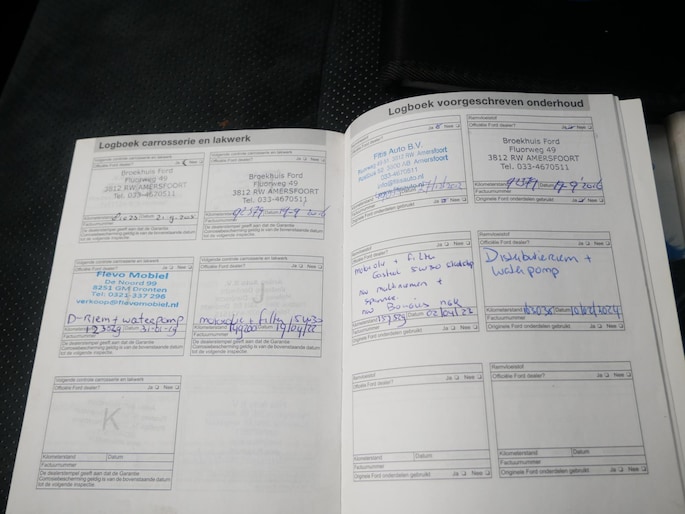 Logboek carrosserie en lakwerk
Volgende controle carrosserie en lakwerk
Officiële Ford dealer? Ja Nee
Broekhuis Ford
Fluorweg 49
3812 RW AMERSFOORT
Tel. 033-4670511
Kilometerstand Datum
Factuurnummer
De dealerstempel geeft aan dat de Garantie
Corrosiebescherming geldig is van de bovenstaande datum
tot de volgende inspectie.
Volgende controle carrosserie en lakwerk
Officiële Ford dealer? Ja Nee
Broekhuis Ford
Fluorweg 49
3812 RW AMERSFOORT
Tel. 033-4670511
Kilometerstand 92379 Datum 19-9-2016
Factuurnummer
De dealerstempel geeft aan dat de Garantie
Corrosiebescherming geldig is van de bovenstaande datum
tot de volgende inspectie.
Flevo Mobiel
De Noord 99
8251 GM Dronten
Tel: 0321-337 296
verkoop@flevomobiel.nl
D-Riem + waterpomp
Kilometerstand Datum 31-01-19
Factuurnummer
De dealerstempel geeft aan dat de Garantie
Corrosiebescherming geldig is van de bovenstaande datum
tot de volgende inspectie.
Volgende controle carrosserie en lakwerk
Officiële Ford dealer? Ja Nee
J
motorolie + Filter 5w30
Kilometerstand Datum 19/04/22
Factuurnummer
De dealerstempel geeft aan dat de Garantie
Corrosiebescherming geldig is van de bovenstaande datum
tot de volgende inspectie.
Volgende controle carrosserie en lakwerk
Officiële Ford dealer? Ja Nee
K
Kilometerstand Datum
Factuurnummer
De dealerstempel geeft aan dat de Garantie
Corrosiebescherming geldig is van de bovenstaande datum
tot de volgende inspectie.
Logboek voorgeschreven onderhoud
Officiële Ford dealer? Ja Nee
Fitis Auto B.V.
3812 RW Amersfoort
Amersfoort
Tel. 033-4670511
Originele Ford onderdelen gebruikt Ja Nee
Remvloeistof
Officiële Ford dealer? Ja Nee
Broekhuis Ford
Fluorweg 49
3812 RW AMERSFOORT
Tel. 033-4670511
Kilometerstand 92379 Datum 19-9-2016
Factuurnummer
Originele Ford onderdelen gebruikt. Ja Nee
Remvloeistof
Officiële Ford dealer? Ja Nee
motorolie + Filter
Castrol 5w30
nw multiriemen +
spanner
nw Bougies NGK
Kilometerstand Datum
Factuurnummer
Originele Ford onderdelen gebruikt. Ja Nee
Remvloeistof
Officiële Ford dealer? Ja Nee
Distributieriem +
waterpomp
Kilometerstand Datum 10/02/2024
Factuurnummer
Originele Ford onderdelen gebruikt. Ja Nee
Remvloeistof
Officiële Ford dealer? Ja Nee
Kilometerstand Datum
Factuurnummer
Originele Ford onderdelen gebruikt. Ja Nee
Remvloeistof
Officiële Ford dealer? Ja Nee
Kilometerstand Datum
Factuurnummer
Originele Ford onderdelen gebruikt. Ja Nee